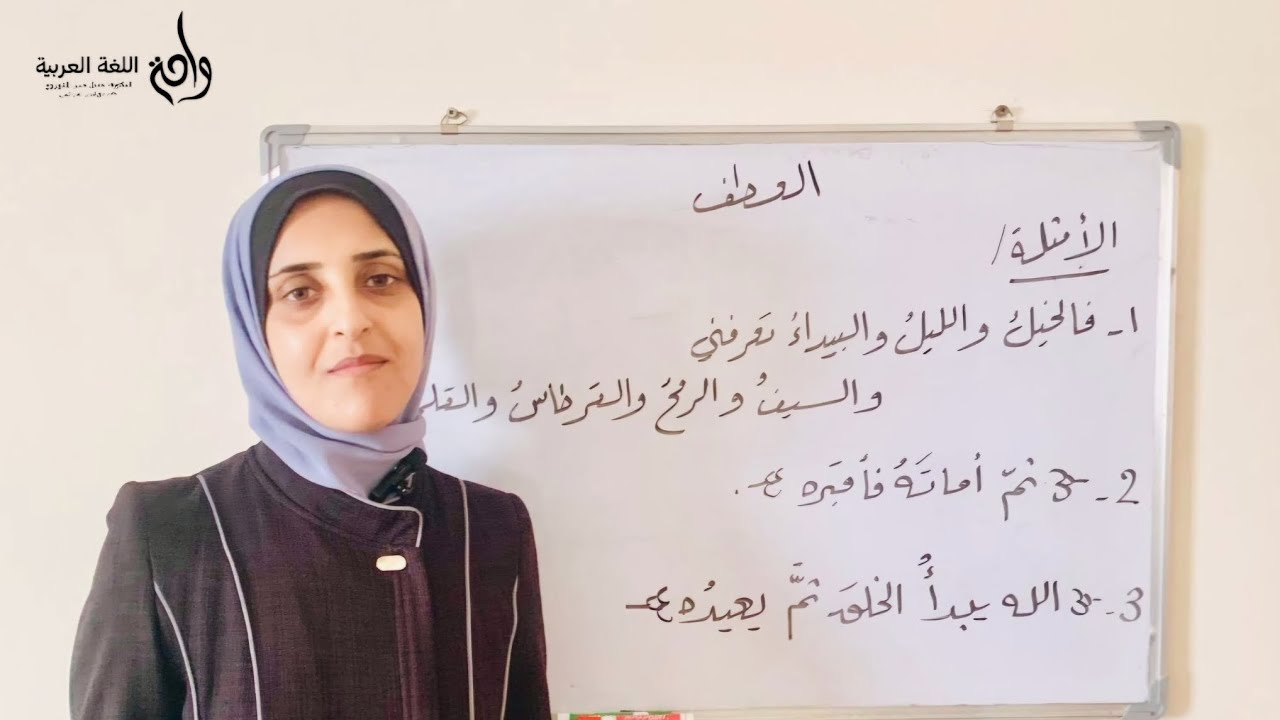 واحة
اللغة العربية
العطف
الأمثلة /
١- فالخيلُ والليلُ والبيداءُ تعرفني
والسيفُ والرمحُ والقرطاسُ والقلم
2- ﴿ ثمّ أماتَهُ فأقبره ﴾ .
3- ﴿ الله يبدأُ الخلقَ ثمَّ يعيدُه ﴾